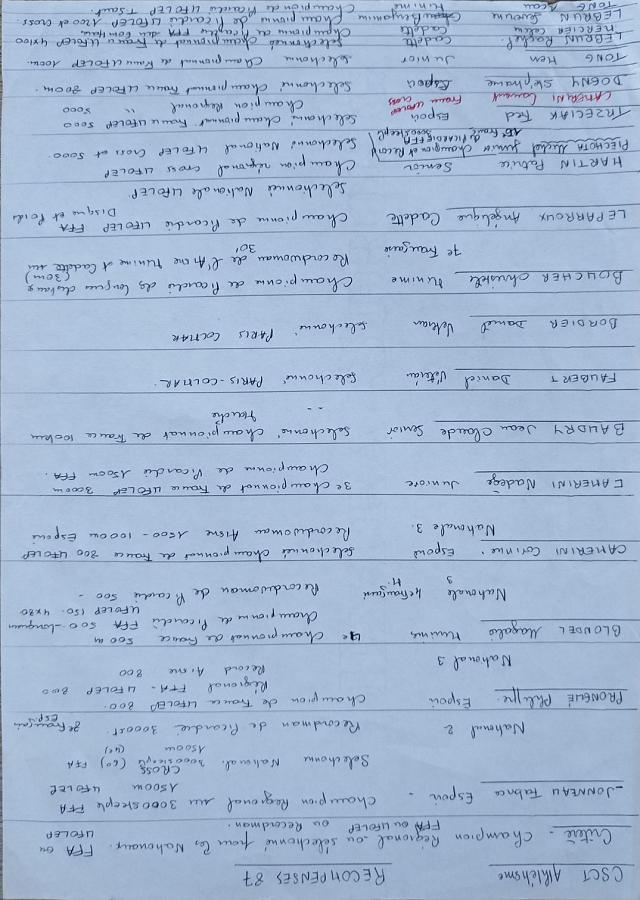 CSCT Athlétisme RECOMPENSES 87
Critère - Champion Régional ou sélectionné pour les Nationaux. FFA ou UFOLEP
FFA ou UFOLEP ou Recordman.
JONNEAU Fabrice Espoir - Champion Régional sur 3000 steeple FFA
1500m UFOLEP
CROSS
Selectionné National. 3000 steeple (6e) FFA
1500m (4e)
National 2 Recordman de Picardie 3000st.
Philippe. Espoir Champion de France UFOLEP 800.
Régional FFA - UFOLEP 800
National 3 Record Aisne 800
BLONDEL Magalie Minime 4e Championnat de France 500m
Championne de Picardie FFA 500 - longueur
UFOLEP 150. 4x80
Nationale 3 4e française M. Recordwoman de Picardie 500 -
CAMERINI Corinne. Espoir Selectionnée Championnat de France 800 UFOLEP
Nationale 3. Recordwoman Aisne 1500 - 1000m Espoir
CAMERINI Nadège Juniore 3e Championnat de France UFOLEP 3000m
Championne de Picardie 1500m FFA.
BAUDRY Jean Claude Senior Selectionné Championnat de France 100km
marche
FAUBERT Daniel Vétéran Selectionné PARIS-COLMAR.
BORDIER Daniel Vétéran Selectionné PARIS COLMAR
BOUCHER Christèle Minime Championne de Picardie de longue distance
(30m)
7e Française Recordwoman de l'Aisne Minime et Cadette sur
30'
LEPARROUX Angélique Cadette Championne de Picardie UFOLEP FFA
Disque et Poids
Selectionnée Nationale UFOLEP
MARTIN Patrice Senior Champion régional cross UFOLEP
Selectionné National UFOLEP Cross et 5000.
PIECHOTA Michel Junior Champion et Record
de Picardie FFA
3000 steeple
TRZECIAK Fred Espoir Selectionné Championnat France UFOLEP 5000
Champion Régional " 5000
CAMERINI Laurent France UFOLEP
cross
DORNY Stéphane Espoir Selectionné Championnat France UFOLEP 800m.
TONG Hen Junior Champion de France UFOLEP 100m
LEBRUN Rachel Cadette Selectionnée Championnat de France UFOLEP 4x100
MERCIER Celine Cadette Championne de Picardie FFA
LEBRUN Benjamine Championne de Picardie 1500 et cross.
TONG Minime Championne de Picardie